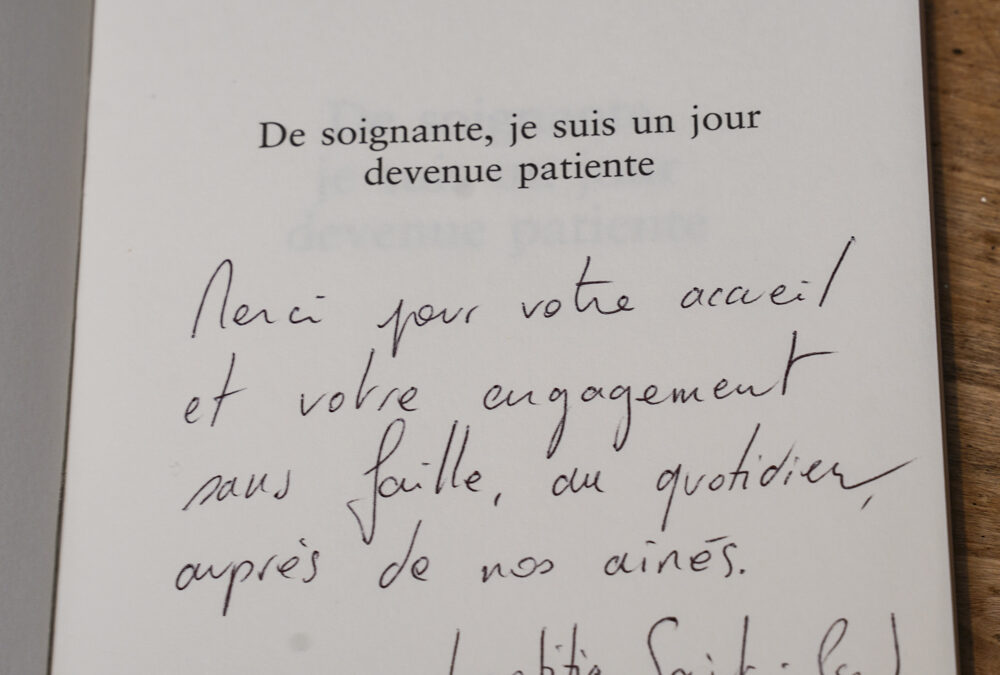 De soignante, je suis un jour
devenue patiente
Merci pour votre accueil
et votre engagement
sans faille, au quotidien,
auprès de nos aînés.